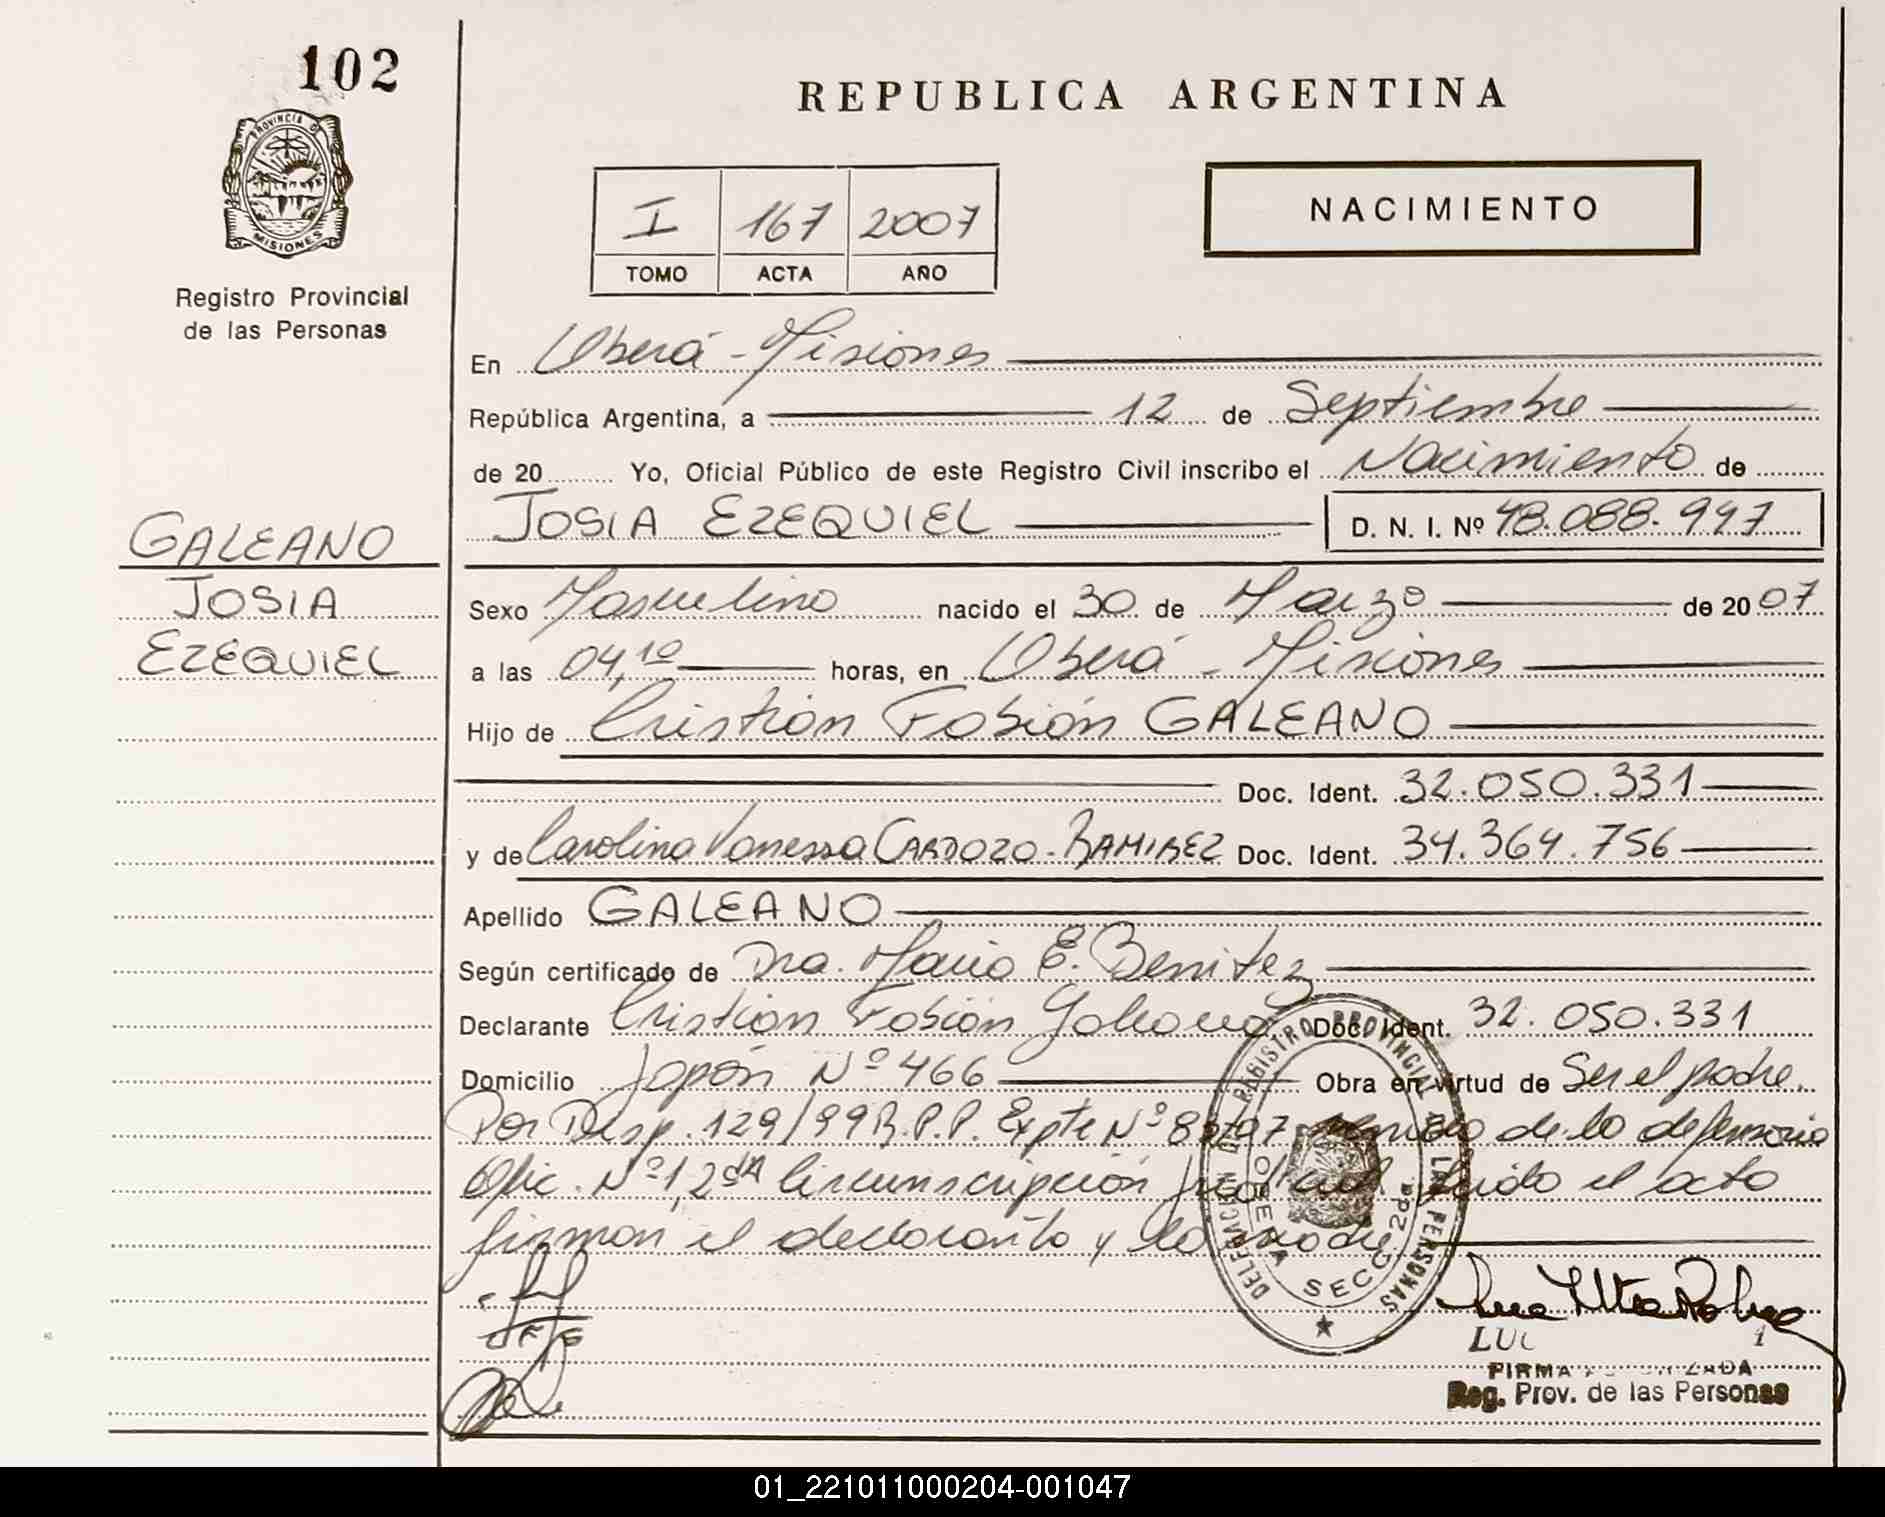 102
REPUBLICA ARGENTINA
PROVINCIA D
MISIONES
Registro Provincial
de las Personas
I 167 2007
TOMO ACTA AÑO
NACIMIENTO
En Oberá - Misiones
República Argentina, a 12 de Septiembre
de 20 Yo, Oficial Público de este Registro Civil inscribo el Nacimiento de
JOSIA EZEQUIEL D. N. I. Nº 48.088.997
GALEANO
JOSIA
EZEQUIEL
Sexo Masculino nacido el 30 de Marzo de 2007
a las 04,10 horas, en Oberá - Misiones
Hijo de Cristian Fabián GALEANO
Doc. Ident. 32.050.331
y de Carolina Vanessa CARDOZO - RAMIREZ Doc. Ident. 34.364.756
Apellido GALEANO
Según certificado de Dra. Maria E. Benitez
Declarante Cristian Fabián Galeano Doc. Ident. 32.050.331
Domicilio Japón Nº 466 Obra en virtud de Ser el padre.
Por Disp. 129/99 R.P.P. Expte Nº de la defensoria
Ofic. Nº 1, 2da Circunscripción Leida el acta
firman el declarante y la madre
DELEGACION DE REGISTRO PROVINCIAL DE LAS PERSONAS
OBERA SECC. 2da.
LUC
FIRMA
Reg. Prov. de las Personas
01_221011000204-001047